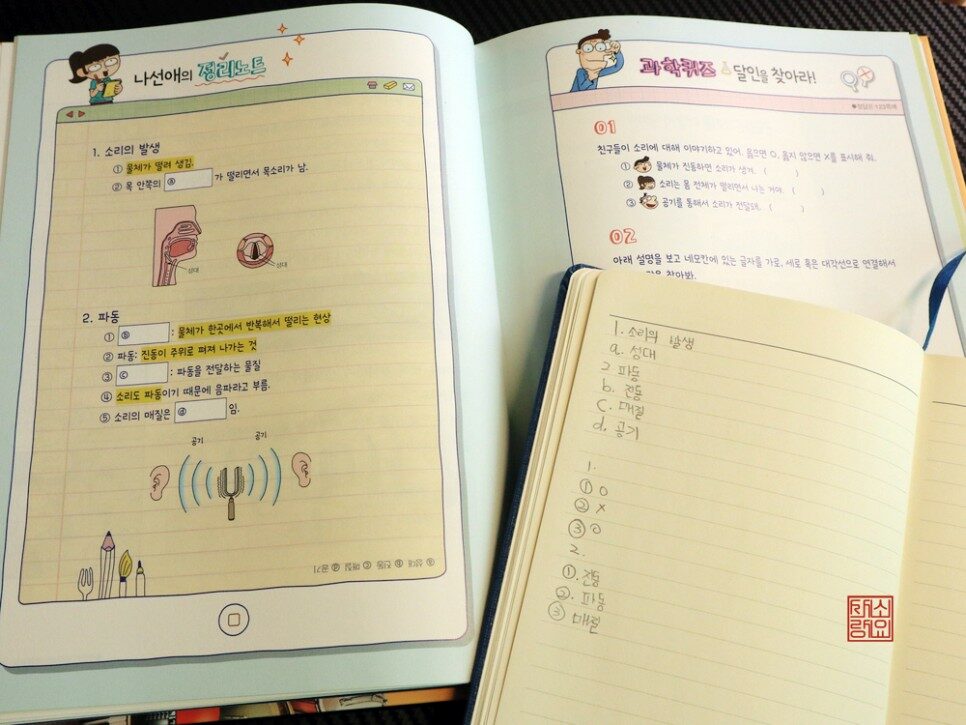 나선애의 정리노트
1. 소리의 발생
① 물체가 떨려 생김.
② 목 안쪽의 ⓐ 가 떨리면서 목소리가 남.
성대
성대
2. 파동
① ⓑ : 물체가 한곳에서 반복해서 떨리는 현상
② 파동: 진동이 주위로 퍼져 나가는 것
③ ⓒ : 파동을 전달하는 물질
④ 소리도 파동이기 때문에 음파라고 부름.
⑤ 소리의 매질은 ⓓ 임.
공기 공기
ⓐ 성대 ⓑ 진동 ⓒ 매질 ⓓ 공기
과학퀴즈 달인을 찾아라!
정답은 123쪽에
01
친구들이 소리에 대해 이야기하고 있어. 옳으면 O, 옳지 않으면 X를 표시해 줘.
① 물체가 진동하면 소리가 생겨. ( )
② 소리는 몸 전체가 떨리면서 나는 거야. ( )
③ 공기를 통해서 소리가 전달돼. ( )
02
아래 설명을 보고 네모칸에 있는 글자를 가로, 세로 혹은 대각선으로 연결해서
찾아봐.
1. 소리의 발생
a. 성대
2. 파동
b. 진동
c. 매질
d. 공기
1.
① O
② X
③ O
2.
①. 진동
②. 파동
③ 매질